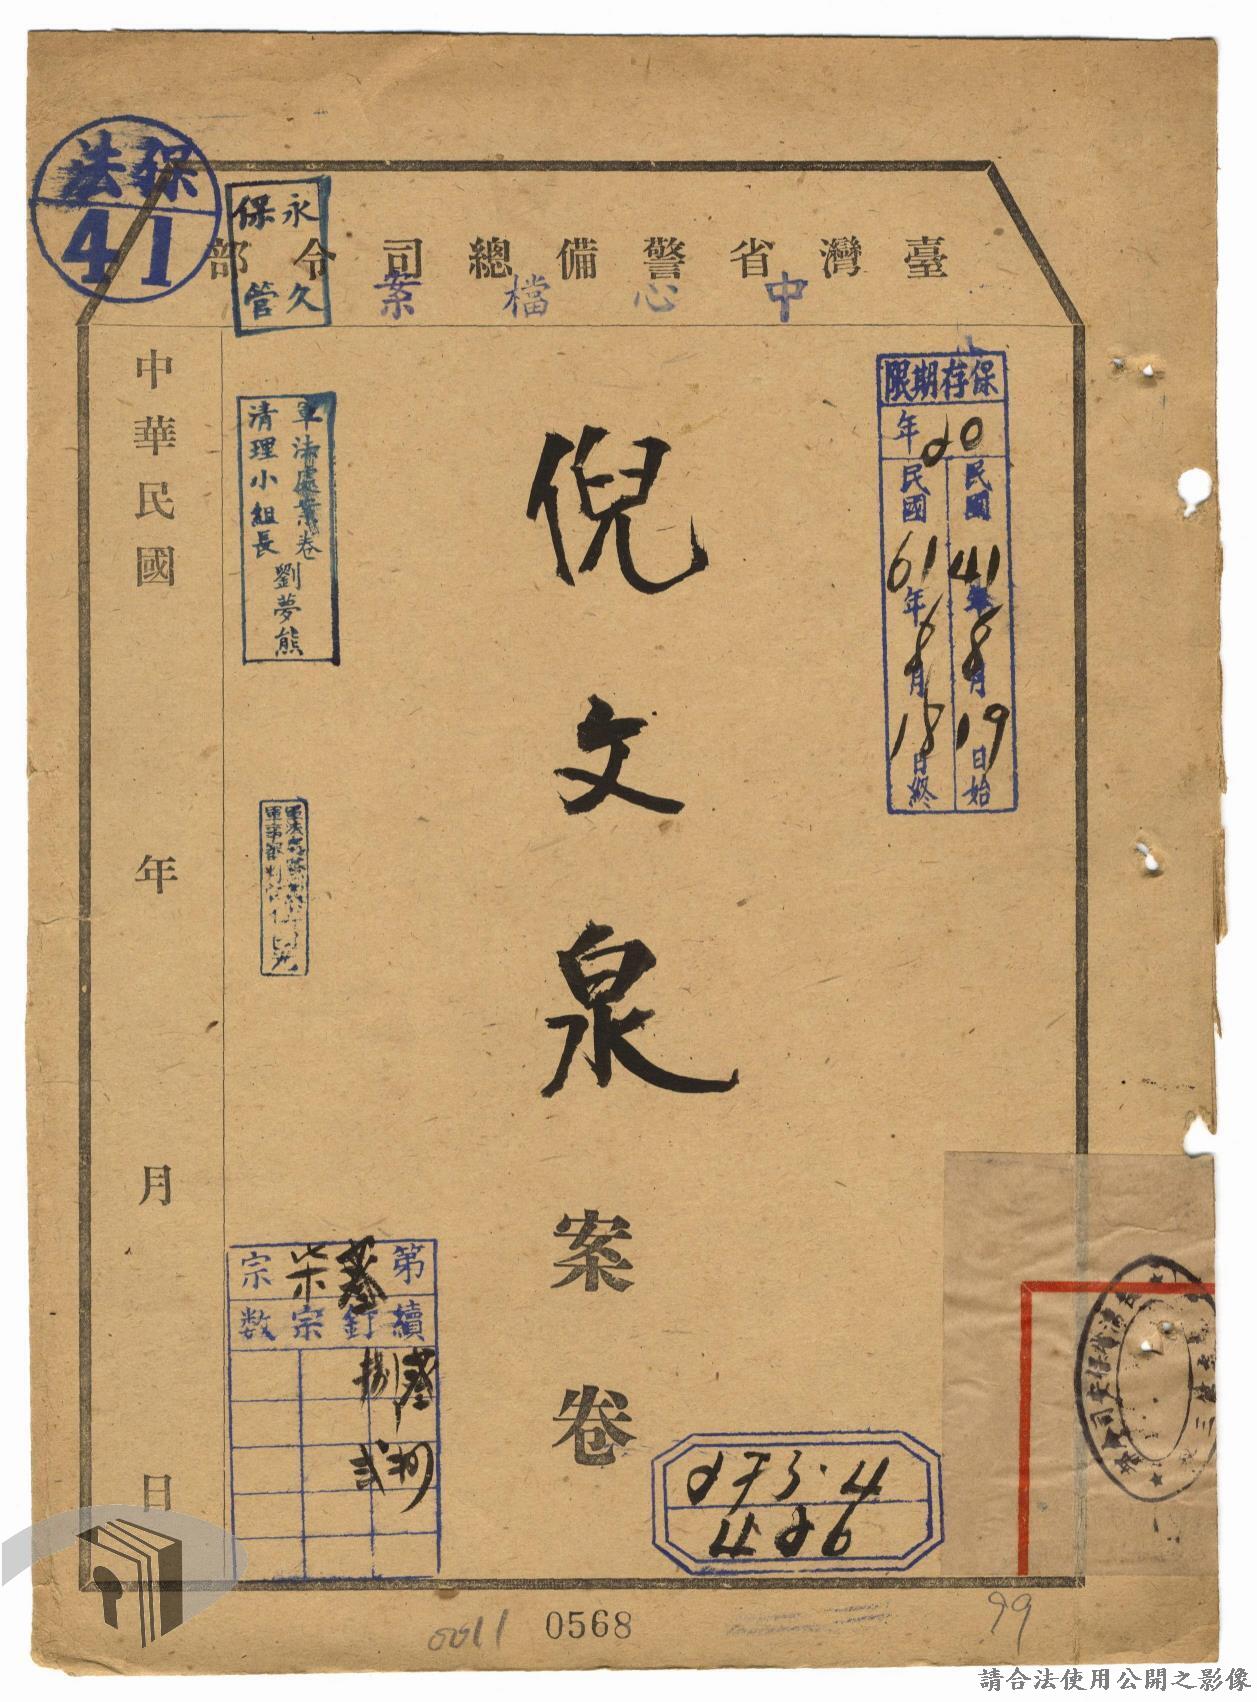 臺灣省警備總司令部
中心檔案
法保
41
永久
保管
保存期限
20年
民國41年8月19日始
民國61年8月18日終
倪文泉案卷
軍法處案卷
清理小組長
劉夢熊
中華民國 年 月 日
第 柒宗
續訂宗數
273.4
426
0011
0568
99
請合法使用公開之影像